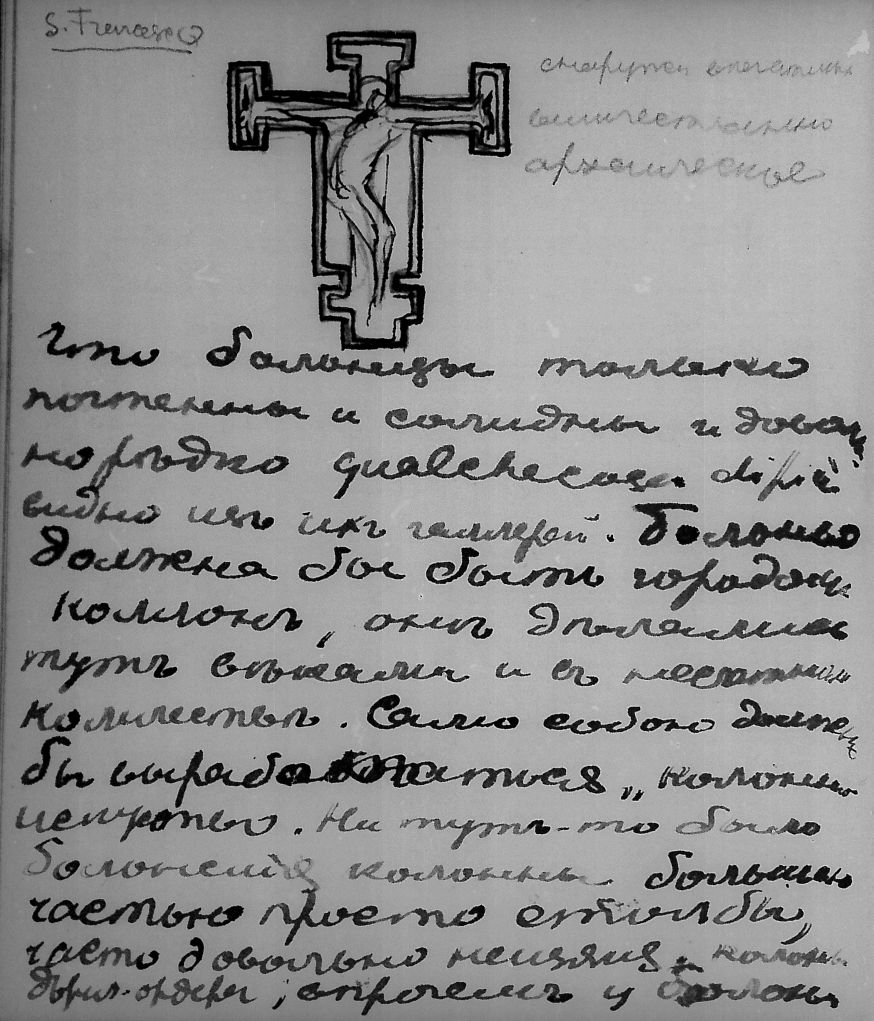 S. Francesco
снаружи впечатленіе
величественно
архаическое
Что болонцы только
почтенны и солидны и доволь
но рѣдко qualchecosa di più
видно изъ ихъ галлерей. Болонья
должна бы быть городомъ
колоннъ, онѣ дѣлались
тутъ вѣками и въ несчетном
количествѣ. Само собою должно
бы выработаться „колонное
искусство. Не тутъ-то было
болонскія колонны большею
частью просто столбы,
часто довольно неизящ. колонны
ордера, впрочемъ у